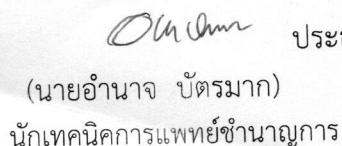 ประ
(นายอำนาจ บัตรมาก)
นักเทคนิคการแพทย์ชำนาญการ